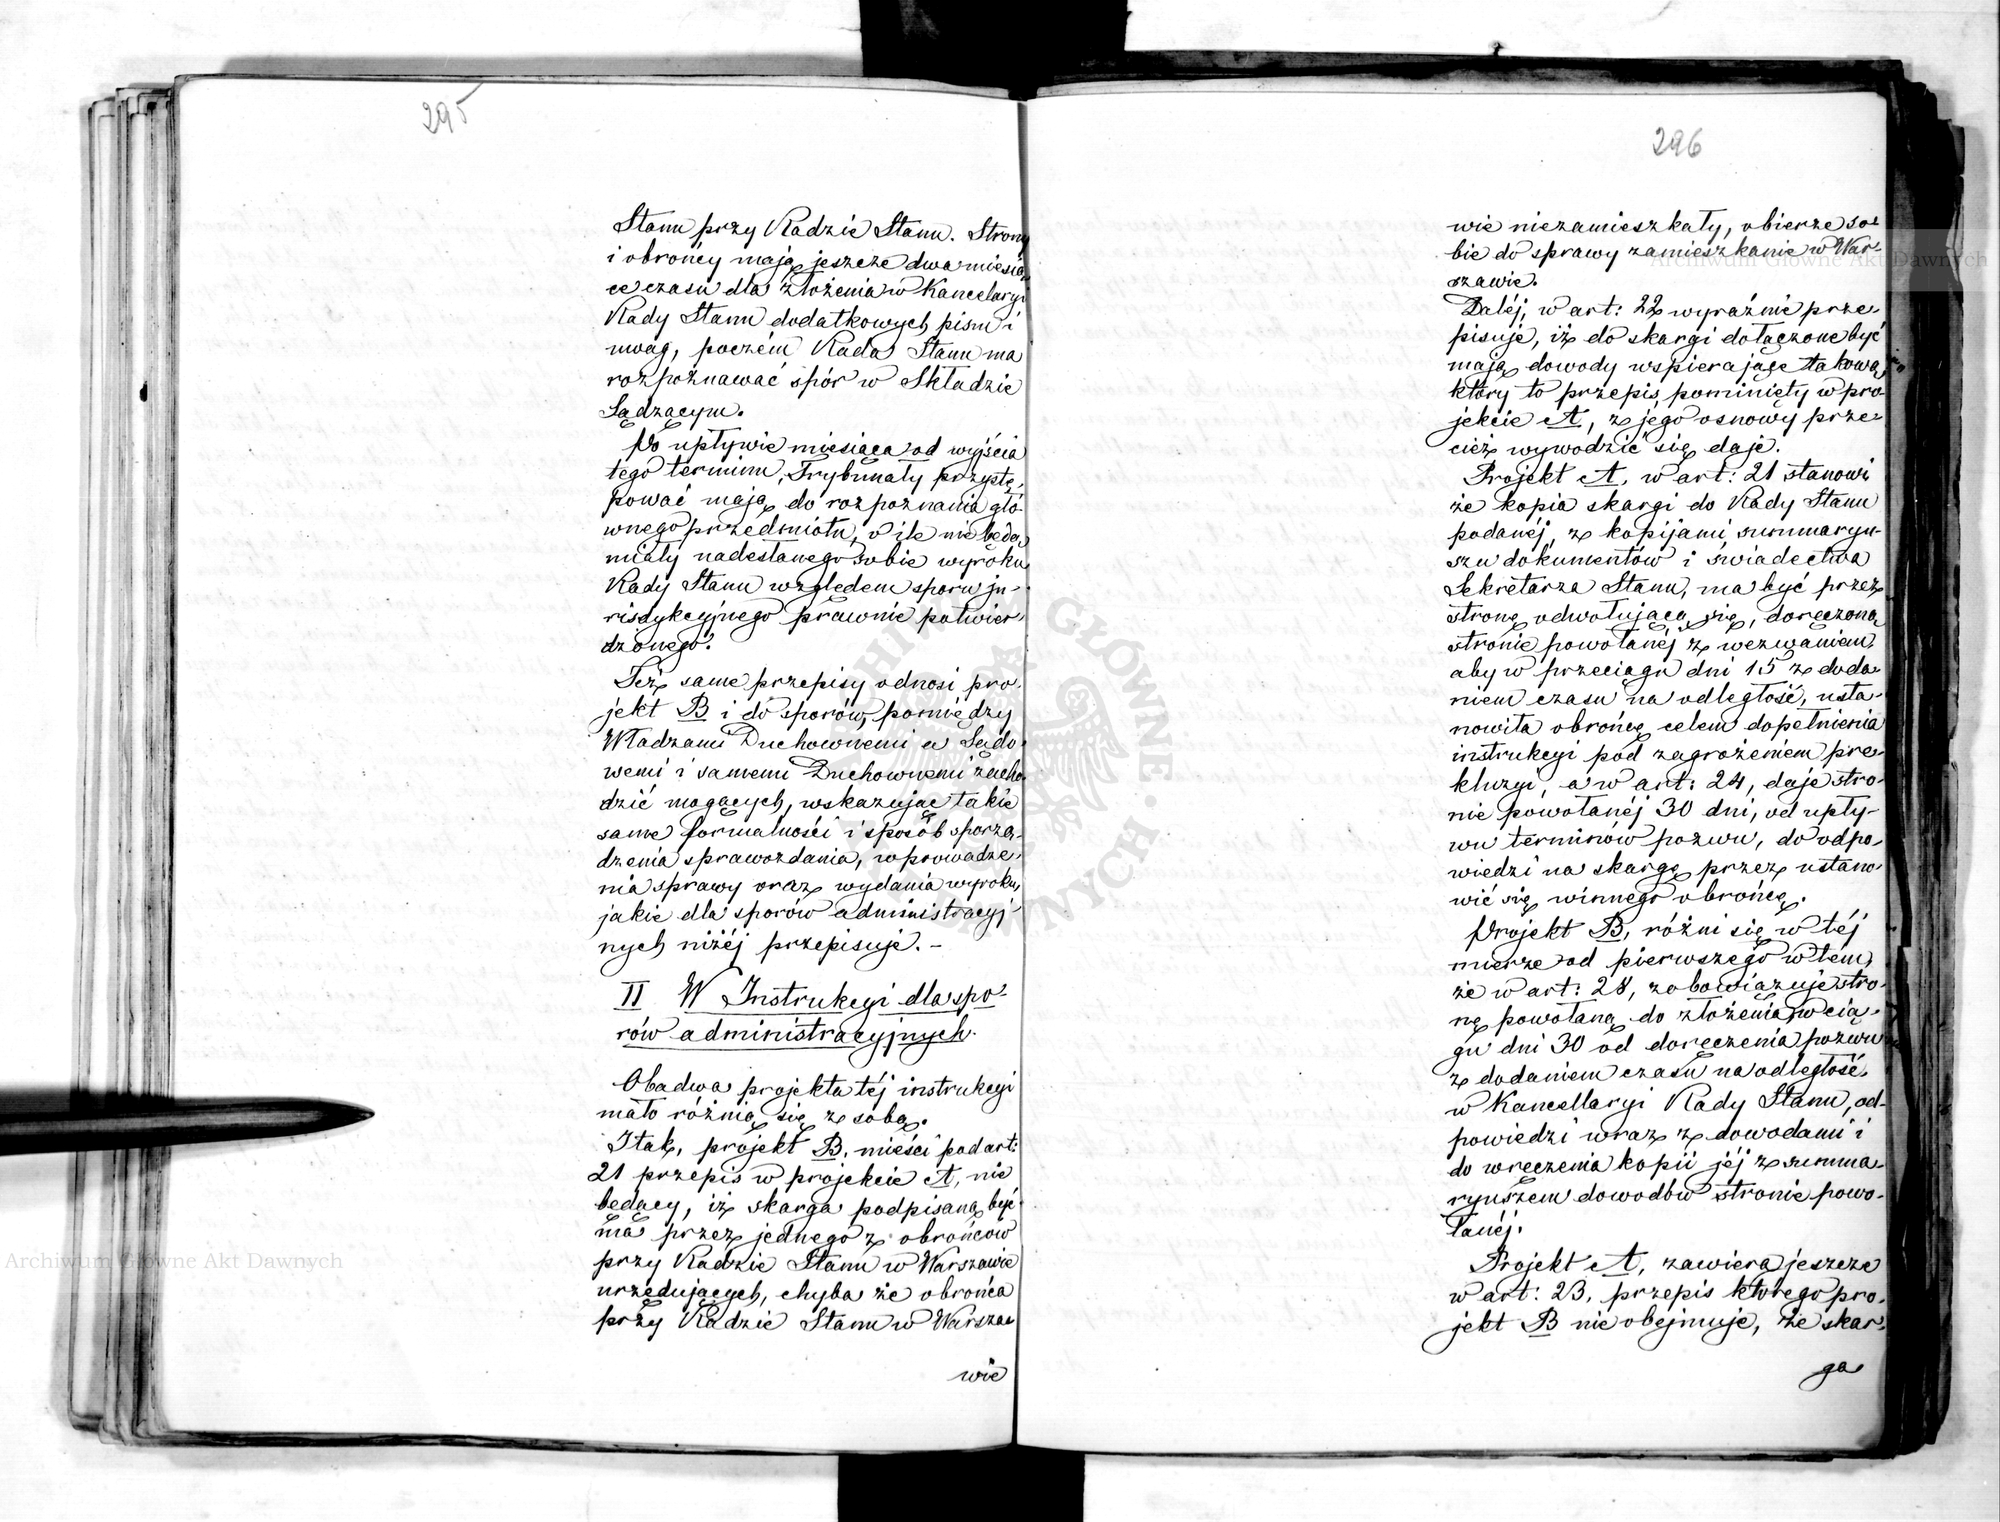 295
Stanu przy Radzie Stanu. Strony
i obrońcy mają jeszcze dwa miesią
ce czasu dla złożenia w Kancelaryi
Rady Stanu dodatkowych pism i
uwag, poczém Rada Stanu ma
rozpoznawać spór w Składzie
Sądzącym.
Po upływie miesiąca od wyjścia
tego terminu, Trybunały przystę-
pować mają do rozpoznania głó-
wnego przedmiotu, o ile nie będą
miały nadesłanego sobie wyroku
Rady Stanu względem sporu ju-
risdykcyjnego prawnie potwier-
dzonego.
Też same przepisy odnosi pro-
jekt B i do sporów, pomiędzy
Władzami Duchownemi a Sądo-
wemi i samemi Duchownemi zacho-
dzić mogących, wskazując takie
same formalności i sposób sporzą-
dzenia sprawozdania, wprowadze-
nia sprawy oraz wydania wyroku,
jakie dla sporów administracyj-
nych niżéj przepisuje. –
II W Instrukcyi dla spo-
rów administracyjnych.
Obadwa projekta téj instrukcyi
mało różnią się z sobą.
I tak, projekt B. mieści pod art:
21 przepis w projekcie A, nie
będący, iż skarga podpisaną być
ma przez jednego z obrońców
przy Radzie Stanu w Warszawie
urzędujących, chyba że obrońca
przy Radzie Stanu w Warsza-
wie
296
wie niezamieszkały, obierze so-
bie do sprawy zamieszkanie w War-
szawie.
Daléj, w art: 22 wyraźnie prze-
pisuje, iż do skargi dołączone być
mają dowody wspierające takową,
który to przepis, pominięty w pro-
jekcie A, z jego osnowy prze-
cież wywodzić się daje.
Projekt A, w art: 21 stanowi
że kopia skargi do Rady Stanu
podanéj, z kopijami summaryu-
szu dokumentów i świadectwa
Sekretarza Stanu, ma być przez
stronę odwołującą się, doręczoną
stronie powołanéj z wezwaniem,
aby w przeciągu dni 15 z doda-
niem czasu na odległość, usta-
nowiła obrońcę celem dopełnienia
instrukcyi pod zagrożeniem pre-
kluzyi, a w art: 24, daje stro-
nie powołanéj 30 dni, od upły-
wu terminów pozwu, do odpo-
wiedzi na skargę przez ustano-
wić się winnego obrońcę.
Projekt B, różni się w téj
mierze od pierwszego w tem,
że w art: 28, zobowiązuje stro-
nę powołaną do złożenia w cią-
gu dni 30 od doręczenia pozwu
z dodaniem czasu na odległość,
w Kancellaryi Rady Stanu, od-
powiedzi wraz z dowodami i
do wręczenia kopii jéj z summa-
ryuszem dowodów stronie powo-
łanéj.
Projekt A, zawiera jeszcze
w art: 23, przepis którego pro-
jekt B nie obejmuje, że skar-
ga
Archiwum Główne Akt Dawnych
Archiwum Główne Akt Dawnych